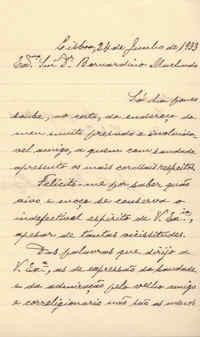 Lisboa, 24 de Junho de 1933
Exmo Snr. Dr. Bernardino Machado
Só há pouco
soube, ao certo, do endereço de
meu muito presado e
vel amigo, a quem com saudade
apresento os mais cordeais respeitos.
Felicito-me por saber quão
vivo e moço se conserva o
indefectivel espírito de V. Exa.,
apesar de tantas vicissitudes.
Das palavras que dirijo a
V. Exa., as de expressão da saudade
e da admiração pelo velho amigo
e correligionario não são as menos